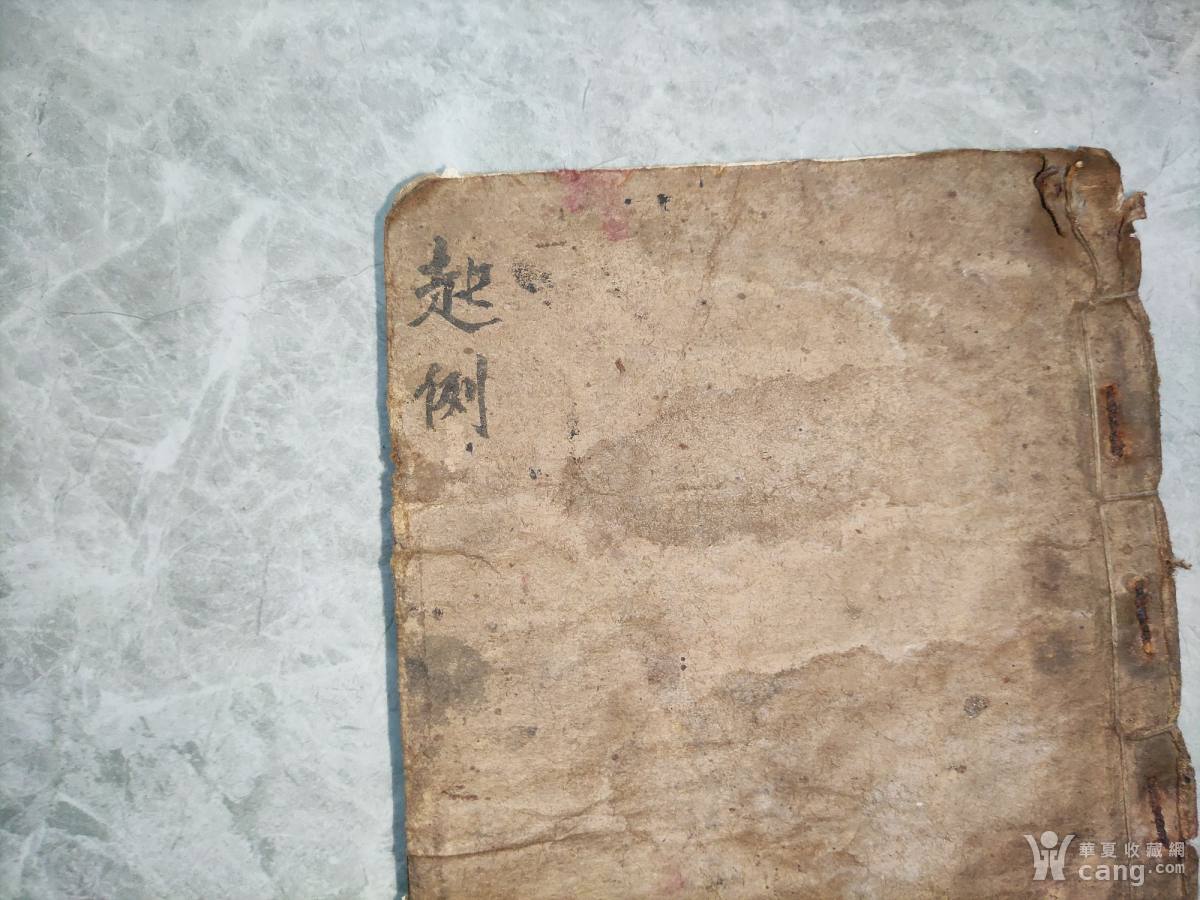 起例
華夏收藏網
cang.com